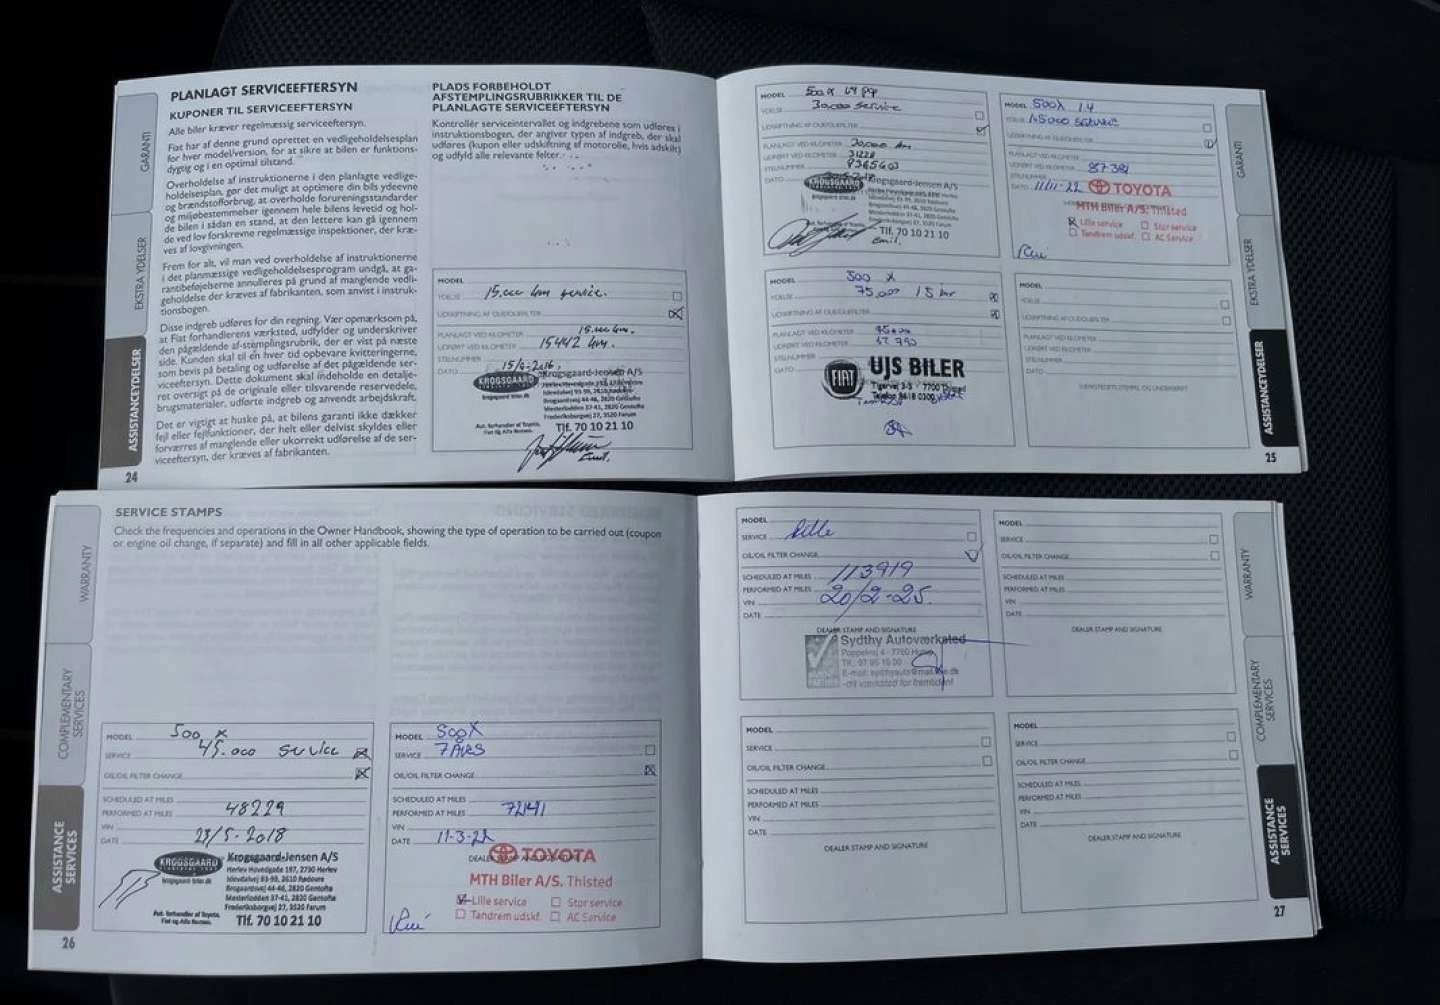 PLANLAGT SERVICEEFTERSYN
KUPONER TIL SERVICEEFTERSYN
Alle biler kræver regelmæssig serviceeftersyn.
Fiat har af denne grund oprettet en vedligeholdelsesplan
for hver model/version, for at sikre at bilen er funktions-
dygtig og i en optimal tilstand.
Overholdelse af instruktionerne i den planlagte vedlige-
holdelsesplan, gør det muligt at optimere din bils ydeevne
og brændstofforbrug, at overholde forureningsstandarder
og miljøbestemmelser igennem hele bilens levetid og hol-
de bilen i sådan en stand, at den lettere kan gå igennem
de ved lov forskrevne regelmæssige inspektioner, der kræ-
ves af lovgivningen.
Frem for alt, vil man ved overholdelse af instruktionerne
i det planmæssige vedligeholdelsesprogram undgå, at ga-
rantibeføjelserne annulleres på grund af manglende vedli-
geholdelse der kræves af fabrikanten, som anvist i instruk-
tionsbogen.
Disse indgreb udføres for din regning. Vær opmærksom på,
at Fiat forhandlerens værksted, udfylder og underskriver
den pågældende af-stemplingsrubrik, der er vist på næste
side. Kunden skal til en hver tid opbevare kvitteringerne,
som bevis på betaling og udførelse af det pågældende ser-
viceeftersyn. Dette dokument skal indeholde en detalje-
ret oversigt på de originale eller tilsvarende reservedele,
brugsmaterialer, udførte indgreb og anvendt arbejdskraft.
Det er vigtigt at huske på, at bilens garanti ikke dækker
fejl eller fejlfunktioner, der helt eller delvist skyldes eller
forværres af manglende eller ukorrekt udførelse af de ser-
viceeftersyn, der kræves af fabrikanten.
24
GARANTI
EKSTRA YDELSER
ASSISTANCEYDELSER
PLADS FORBEHOLDT
AFSTEMPLINGSRUBRIKKER TIL DE
PLANLAGTE SERVICEEFTERSYN
Kontrollér serviceintervallet og indgrebene som udføres i
instruktionsbogen, der angiver typen af indgreb, der skal
udføres (kupon eller udskiftning af motorolie, hvis adskilt)
og udfyld alle relevante felter.
MODEL
YDELSE 15.000 km service.
UDSKIFTNING AF OLIE/OLIEFILTER
PLANLAGT VED KILOMETER 15.000 km.
UDFØRT VED KILOMETER 15442 km.
STELNUMMER
DATO 15/6-2016.
KROGSGAARD
Krogsgaard-Jensen A/S
Idevdalvej 83-99, 2610 Rødovre
Brogaardsvej 44-46, 2820 Gentofte
Mesterlodden 37-41, 2820 Gentofte
Frederiksborgvej 27, 3520 Farum
Aut. forhandler af Toyota,
Fiat og Alfa Romeo.
Tlf. 70 10 21 10
MODEL 500 X
YDELSE 30.000 service
UDSKIFTNING AF OLIE/OLIEFILTER
PLANLAGT VED KILOMETER 30.000 km
UDFØRT VED KILOMETER 31228
STELNUMMER P365603
DATO
KROGSGAARD
Krogsgaard-Jensen A/S
Brogaardsvej 44-46, 2820 Gentofte
Mesterlodden 37-41, 2820 Gentofte
Frederiksborgvej 27, 3520 Farum
Tlf. 70 10 21 10
Emil.
MODEL 500X 1.4
YDELSE SERVICE
UDSKIFTNING AF OLIE/OLIEFILTER
PLANLAGT VED KILOMETER
UDFØRT VED KILOMETER
STELNUMMER
DATO 11/11-22
TOYOTA
MTH Biler A/S. Thisted
Lille service
Stor service
Tandrem udskf.
AC Service
MODEL 500 X
YDELSE 75.000
UDSKIFTNING AF OLIE/OLIEFILTER
PLANLAGT VED KILOMETER
UDFØRT VED KILOMETER
STELNUMMER
DATO
FIAT
UJS BILER
Tigervej 3-5 7700 Thisted
MODEL
YDELSE
UDSKIFTNING AF OLIE/OLIEFILTER
PLANLAGT VED KILOMETER
UDFØRT VED KILOMETER
STELNUMMER
DATO
GARANTI
EKSTRA YDELSER
ASSISTANCEYDELSER
25
SERVICE STAMPS
Check the frequencies and operations in the Owner Handbook, showing the type of operation to be carried out (coupon
or engine oil change, if separate) and fill in all other applicable fields.
WARRANTY
COMPLEMENTARY
SERVICES
ASSISTANCE
SERVICES
MODEL 500 X
SERVICE 45.000 service
OIL/OIL FILTER CHANGE
SCHEDULED AT MILES
PERFORMED AT MILES 48229
VIN
DATE 23/5-2018
KROGSGAARD
Krogsgaard-Jensen A/S
Herlev Hovedgade 197, 2730 Herlev
Brogaardsvej 44-46, 2820 Gentofte
Mesterlodden 37-41, 2820 Gentofte
Frederiksborgvej 27, 3520 Farum
Aut. forhandler af Toyota,
Fiat og Alfa Romeo.
Tlf. 70 10 21 10
26
MODEL 500X
SERVICE 7 ÅRS
OIL/OIL FILTER CHANGE
SCHEDULED AT MILES
PERFORMED AT MILES
VIN
DATE 11-3-22
TOYOTA
MTH Biler A/S. Thisted
Lille service
Stor service
Tandrem udskf.
AC Service
MODEL
SERVICE Lille
OIL/OIL FILTER CHANGE
SCHEDULED AT MILES 113919
PERFORMED AT MILES 20/2-25.
VIN
DATE
DEALER STAMP AND SIGNATURE
Sydthy Autoværksted
- dit værksted for fremtiden!
MODEL
SERVICE
OIL/OIL FILTER CHANGE
SCHEDULED AT MILES
PERFORMED AT MILES
VIN
DATE
DEALER STAMP AND SIGNATURE
MODEL
SERVICE
OIL/OIL FILTER CHANGE
SCHEDULED AT MILES
PERFORMED AT MILES
VIN
DATE
DEALER STAMP AND SIGNATURE
MODEL
SERVICE
OIL/OIL FILTER CHANGE
SCHEDULED AT MILES
PERFORMED AT MILES
VIN
DATE
DEALER STAMP AND SIGNATURE
WARRANTY
COMPLEMENTARY
SERVICES
ASSISTANCE
SERVICES
27